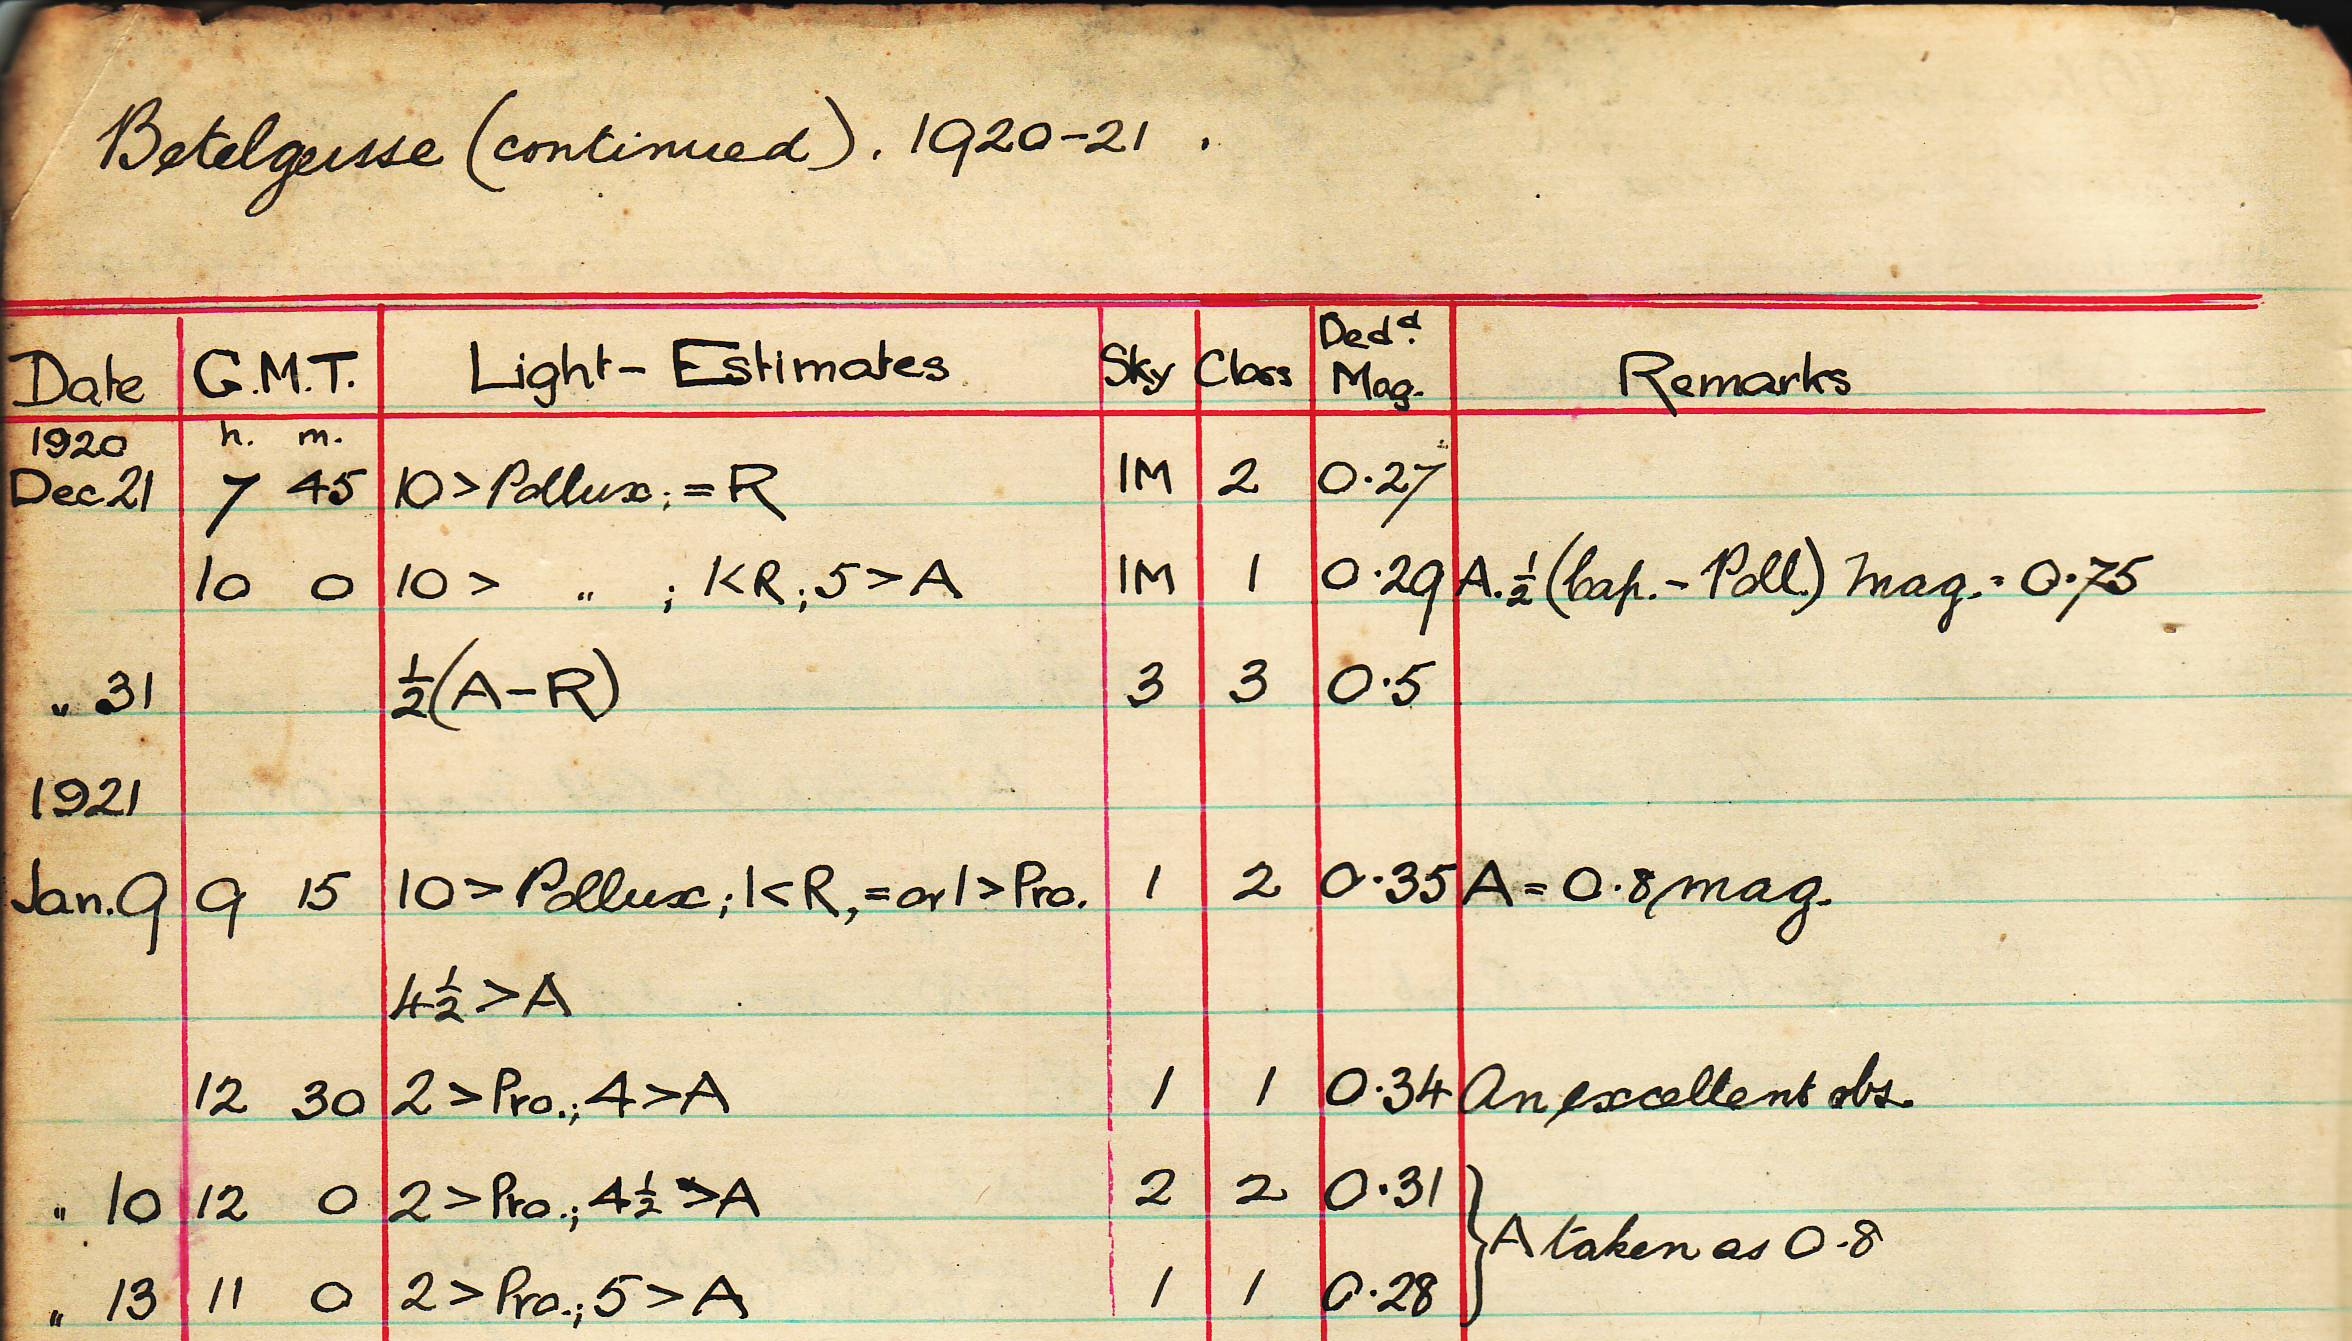 Betelgeusse (continued). 1920-21.
Date G.M.T. Light-Estimates Sky Class Ded^d. Mag. Remarks
1920 h. m.
Dec 21 7 45 10 > Pollux; = R 1M 2 0.27
10 0 10 > " ; 1<R; 5 > A 1M 1 0.29 A. ½ (Cap. - Poll.) Mag. = 0.75
" 31 ½(A-R) 3 3 0.5
1921
Jan. 9 9 15 10 > Pollux; 1<R, = or 1 > Pro. 1 2 0.35 A = 0.8 mag.
4½ > A
12 30 2 > Pro.; 4 > A 1 1 0.34 An excellent obs.
" 10 12 0 2 > Pro.; 4½ > A 2 2 0.31
A taken as 0.8
" 13 11 0 2 > Pro.; 5 > A 1 1 0.28